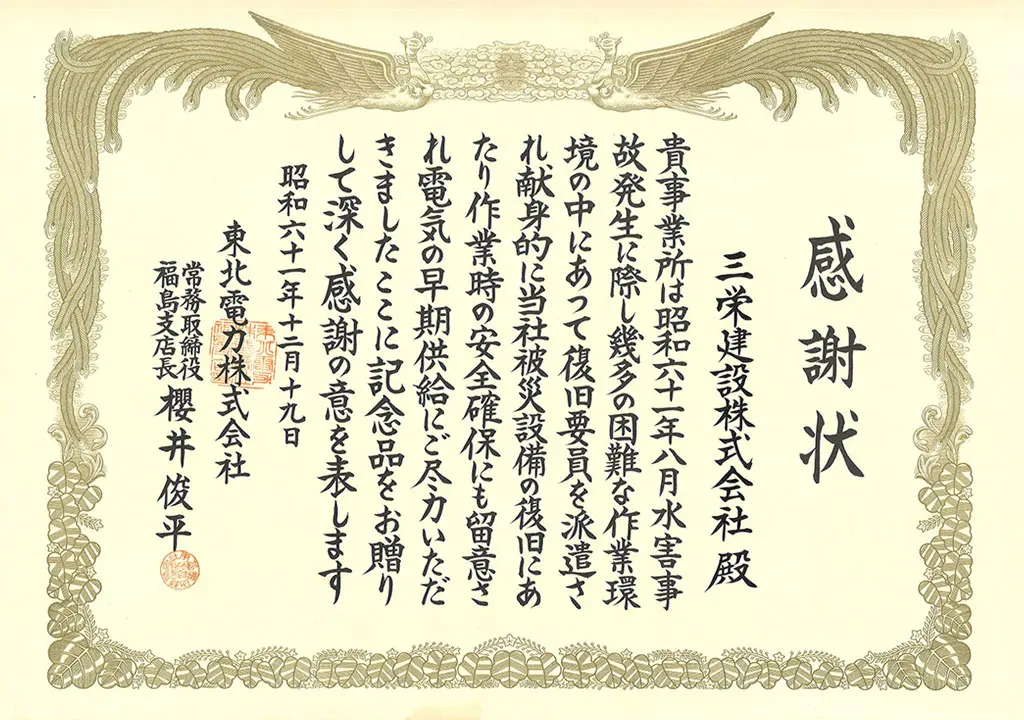 感謝状
三栄建設株式会社 殿
貴事業所は昭和六十一年八月水害事
故発生に際し幾多の困難な作業環
境の中にあって復旧要員を派遣さ
れ、献身的に当社被災設備の復旧にあ
たり作業時の安全確保にも留意さ
れ電気の早期供給にご尽力いただ
きましたここに記念品をお贈り
して深く感謝の意を表します
昭和六十一年十二月十九日
東北電力株式会社
常務取締役
福島支店長
櫻井俊平